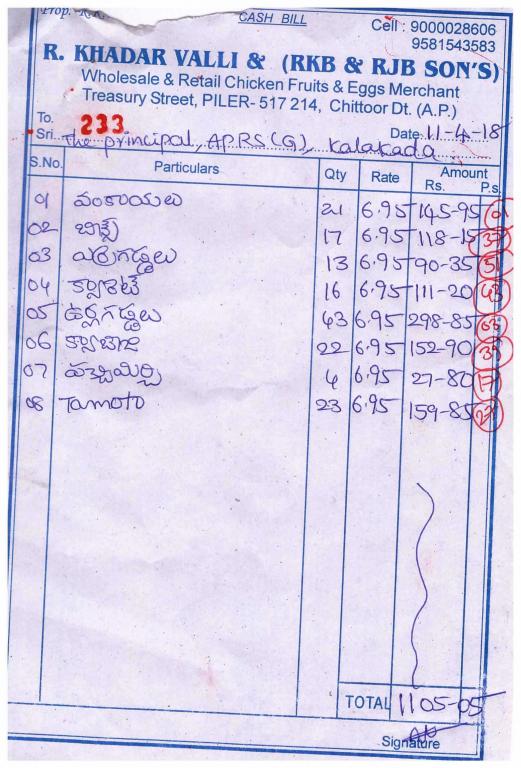 CASH BILL
Cell : 9000028606
9581543583
R. KHADAR VALLI & (RKB & RJB SON'S)
Wholesale & Retail Chicken Fruits & Eggs Merchant
Treasury Street, PILER- 517 214, Chittoor Dt. (A.P.)
To. 233
Sri. The principal, APRS(G), Kalakada Date 11-4-18
S.No. Particulars Qty Rate Amount
Rs. Ps.
01 వంకాయలు 21 6.95 145-95
02 బీన్స్ 17 6.95 118-15
03 ఎర్రగడ్డలు 13 6.95 90-35
04 క్యారెట్ 16 6.95 111-20
05 ఉర్లగడ్డలు 43 6.95 298-85
06 22 6.95 152-90
07 పచ్చిమిర్చి 4 6.95 27-80
08 Tamoto 23 6.95 159-85
TOTAL 1105-05
Signature